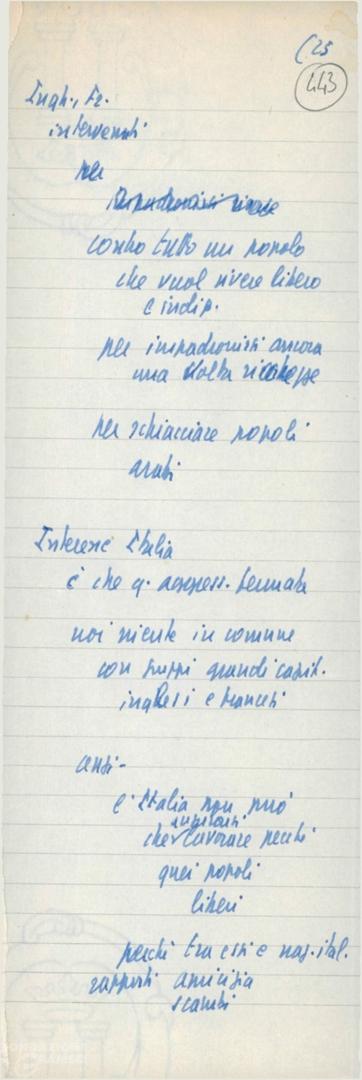 (25
443
Ingh., Fr.
intervenuti
per
impadronirsi risorse
contro tutto un popolo
che vuol vivere libero
e indip.
per impadronirsi ancora
una volta ricchezze
per schiacciare popoli
arabi
Interesse Italia
è che q. aggress. fermata
noi niente in comune
con gruppi grandi capit.
inglesi e francesi
anzi -
e' Italia non può
augurarsi
che lavorare perché
quei popoli
liberi
perchè tra essi e naz. ital.
rapporti amicizia
scambi